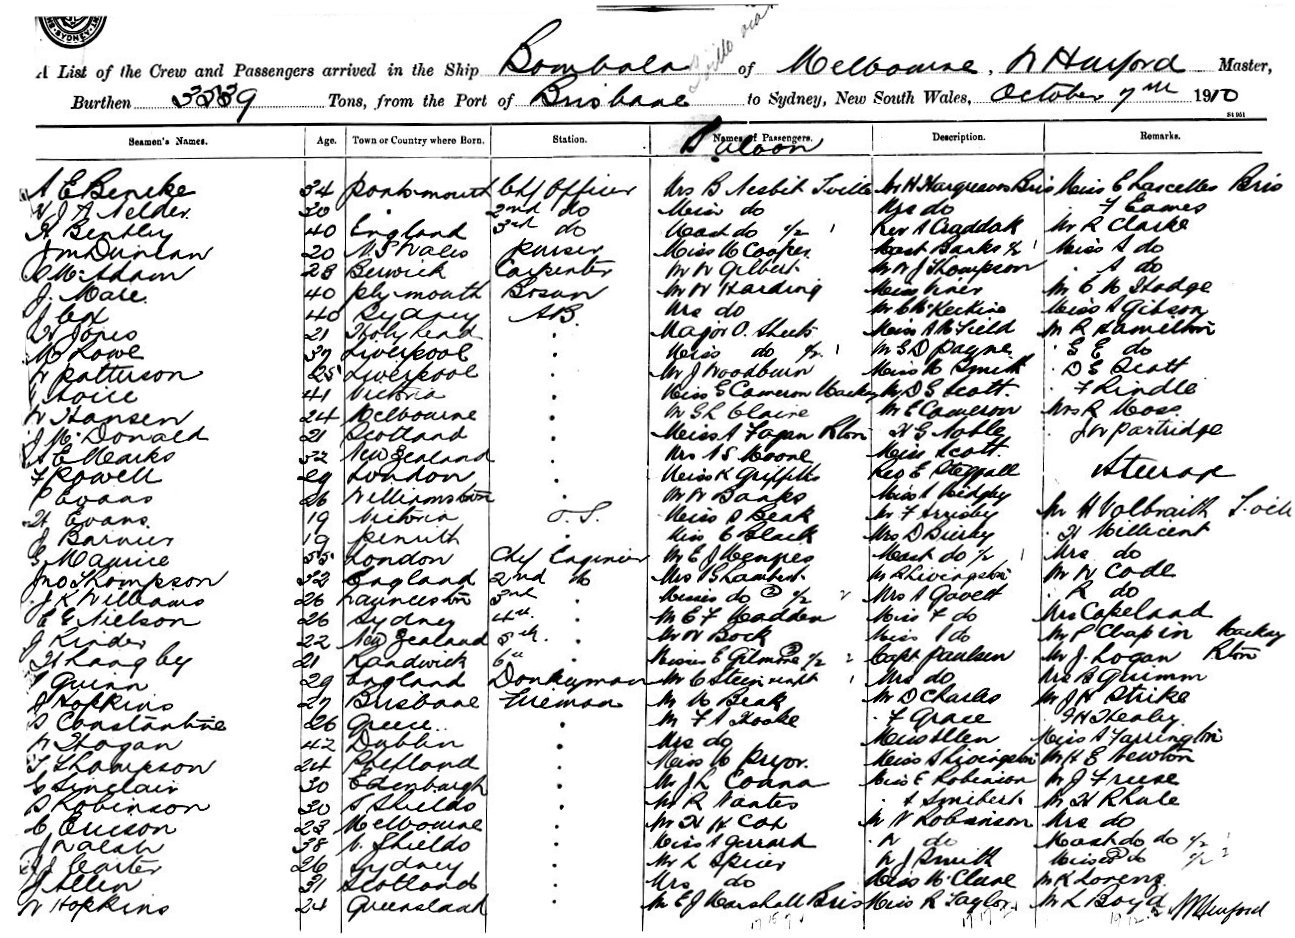 SYDNEY
A List of the Crew and Passengers arrived in the Ship Bombala of Melbourne, Master,
Burthen Tons, from the Port of Brisbane to Sydney, New South Wales, October 7th 1910
Seamen's Names. Age. Town or Country where Born. Station. Names of Passengers. Description. Remarks.
Saloon
34 Portsmouth Chf Officer Mrs B Nesbit Tville Mr H Hargreaves Bris Miss E Lascelles Bris
30 2nd do Miss do Mrs do F Eames
K Bentley 40 England 3rd do Mast do 1/2 1 Rev A Craddock Mr R Clarke
J M Duncan 20 N S Wales Purser Miss M Cooper Mast Banks 1/2 1 Miss A do
C McAdam 28 Berwick Carpenter Mr W Gilbert Mr W J Thompson A do
J. Mare 40 Plymouth Bosun Mr W Harding Miss Viner Mr C M Hodge
J Cox 40 Sydney AB Mrs do Miss A Gibson
W Jones 21 Holyhead Major O. Miss A M Field Mr R Hamilton
M Lowe 37 Liverpool Miss do 1/2 1 Mr G D Payne G E do
W Patterson 25 Liverpool Mr J Woodburn Miss M Smith D E Scott
41 Victoria Miss E Cameron Mackay Mr D G Scott F Rindle
W Hansen 24 Melbourne Mr G L Claire Mr E Cameron Mrs R Moss
J McDonald 21 Scotland Miss A Fagan Rton H G Noble J W Partridge
A E Marks 32 New Zealand Mrs A S Moore Miss Scott
F Powell 29 London Miss K Griffiths Rev E Steerage
P Evans 26 Williamstown Mr W Banks Miss A
H Evans 19 Victoria O.S. Miss A Beak Mr F Mr H Tville
J Barnier 19 Penrith Miss C Black Mrs D Bushy H Millicent
G Maurice 55 London Chf Engineer Mr E J Mast do 1/2 1 Mrs do
Jno Thompson 33 England 2nd do Mrs Mr R Livingston Mr W Code
J K Williams 26 Launceston 3rd Misses do 2 1/2 Mrs A Gavett R do
E G Nielson 26 Sydney 4th Mr E F Madden Miss F do Mrs Copeland
J Kinder 22 New Zealand 5th Mr W Bock Miss I do Mr P Chapin Mackay
H Langby 21 Randwick 6th Misses E Gilmore 1/2 2 Capt Paulsen Mr J. Logan Rton
Quinn 29 England Donkeyman Mr C Mrs do Mrs B Grimm
J Hopkins 27 Brisbane Fireman Mr M Beak Mr D Charles Mr J H Strike
D Constantine 26 Greece Mr F A Hooke F Grace G H Healey
W Hogan 42 Dublin Mrs do Miss Allen Miss A Farrington
T Thompson 24 Miss M Pryor Miss A Livingston Mr H E Newton
C Sinclair 30 Edenburgh Mr J L Conna Miss E Robinson Mr J Freese
D Robinson 30 S Shields Mr R Vantes Mr H Rhule
C Ericson 23 Melbourne Mr H H Cox Mr V Robinson Mrs do
J Walsh 38 N. Shields Miss A Gerrard W do Mast do do 1/2 1
J Carter 26 Sydney Mr L Spier W J Smith Misses do 1/2 2
J Allen 31 Scotland Mrs do Miss McClure Mr K Lorenz
W Hopkins 24 Queensland Mr E J Marshall Bris Miss R Taylor Mr L Boyd